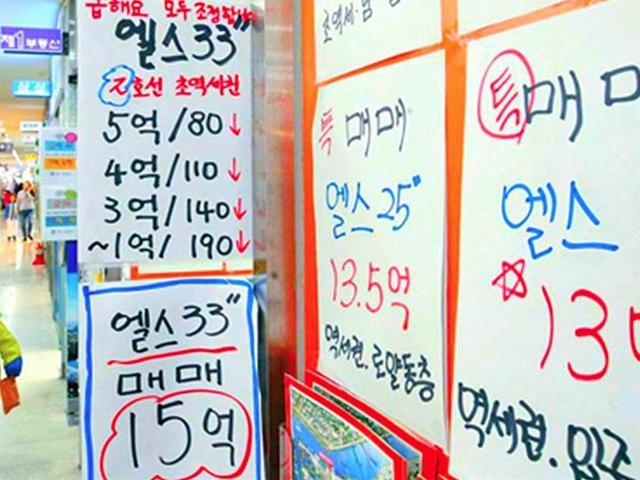 급해요 모두 조정됩니다
엘스 33"
2호선 초역세권
5억/80↓
4억/110↓
3억/140↓
~1억/190↓
엘스 33"
매매
15억
제1부동산
특 매매
엘스 25"
13.5억
역세권.로얄동층
특 매매
엘스
☆13
역세권.입주